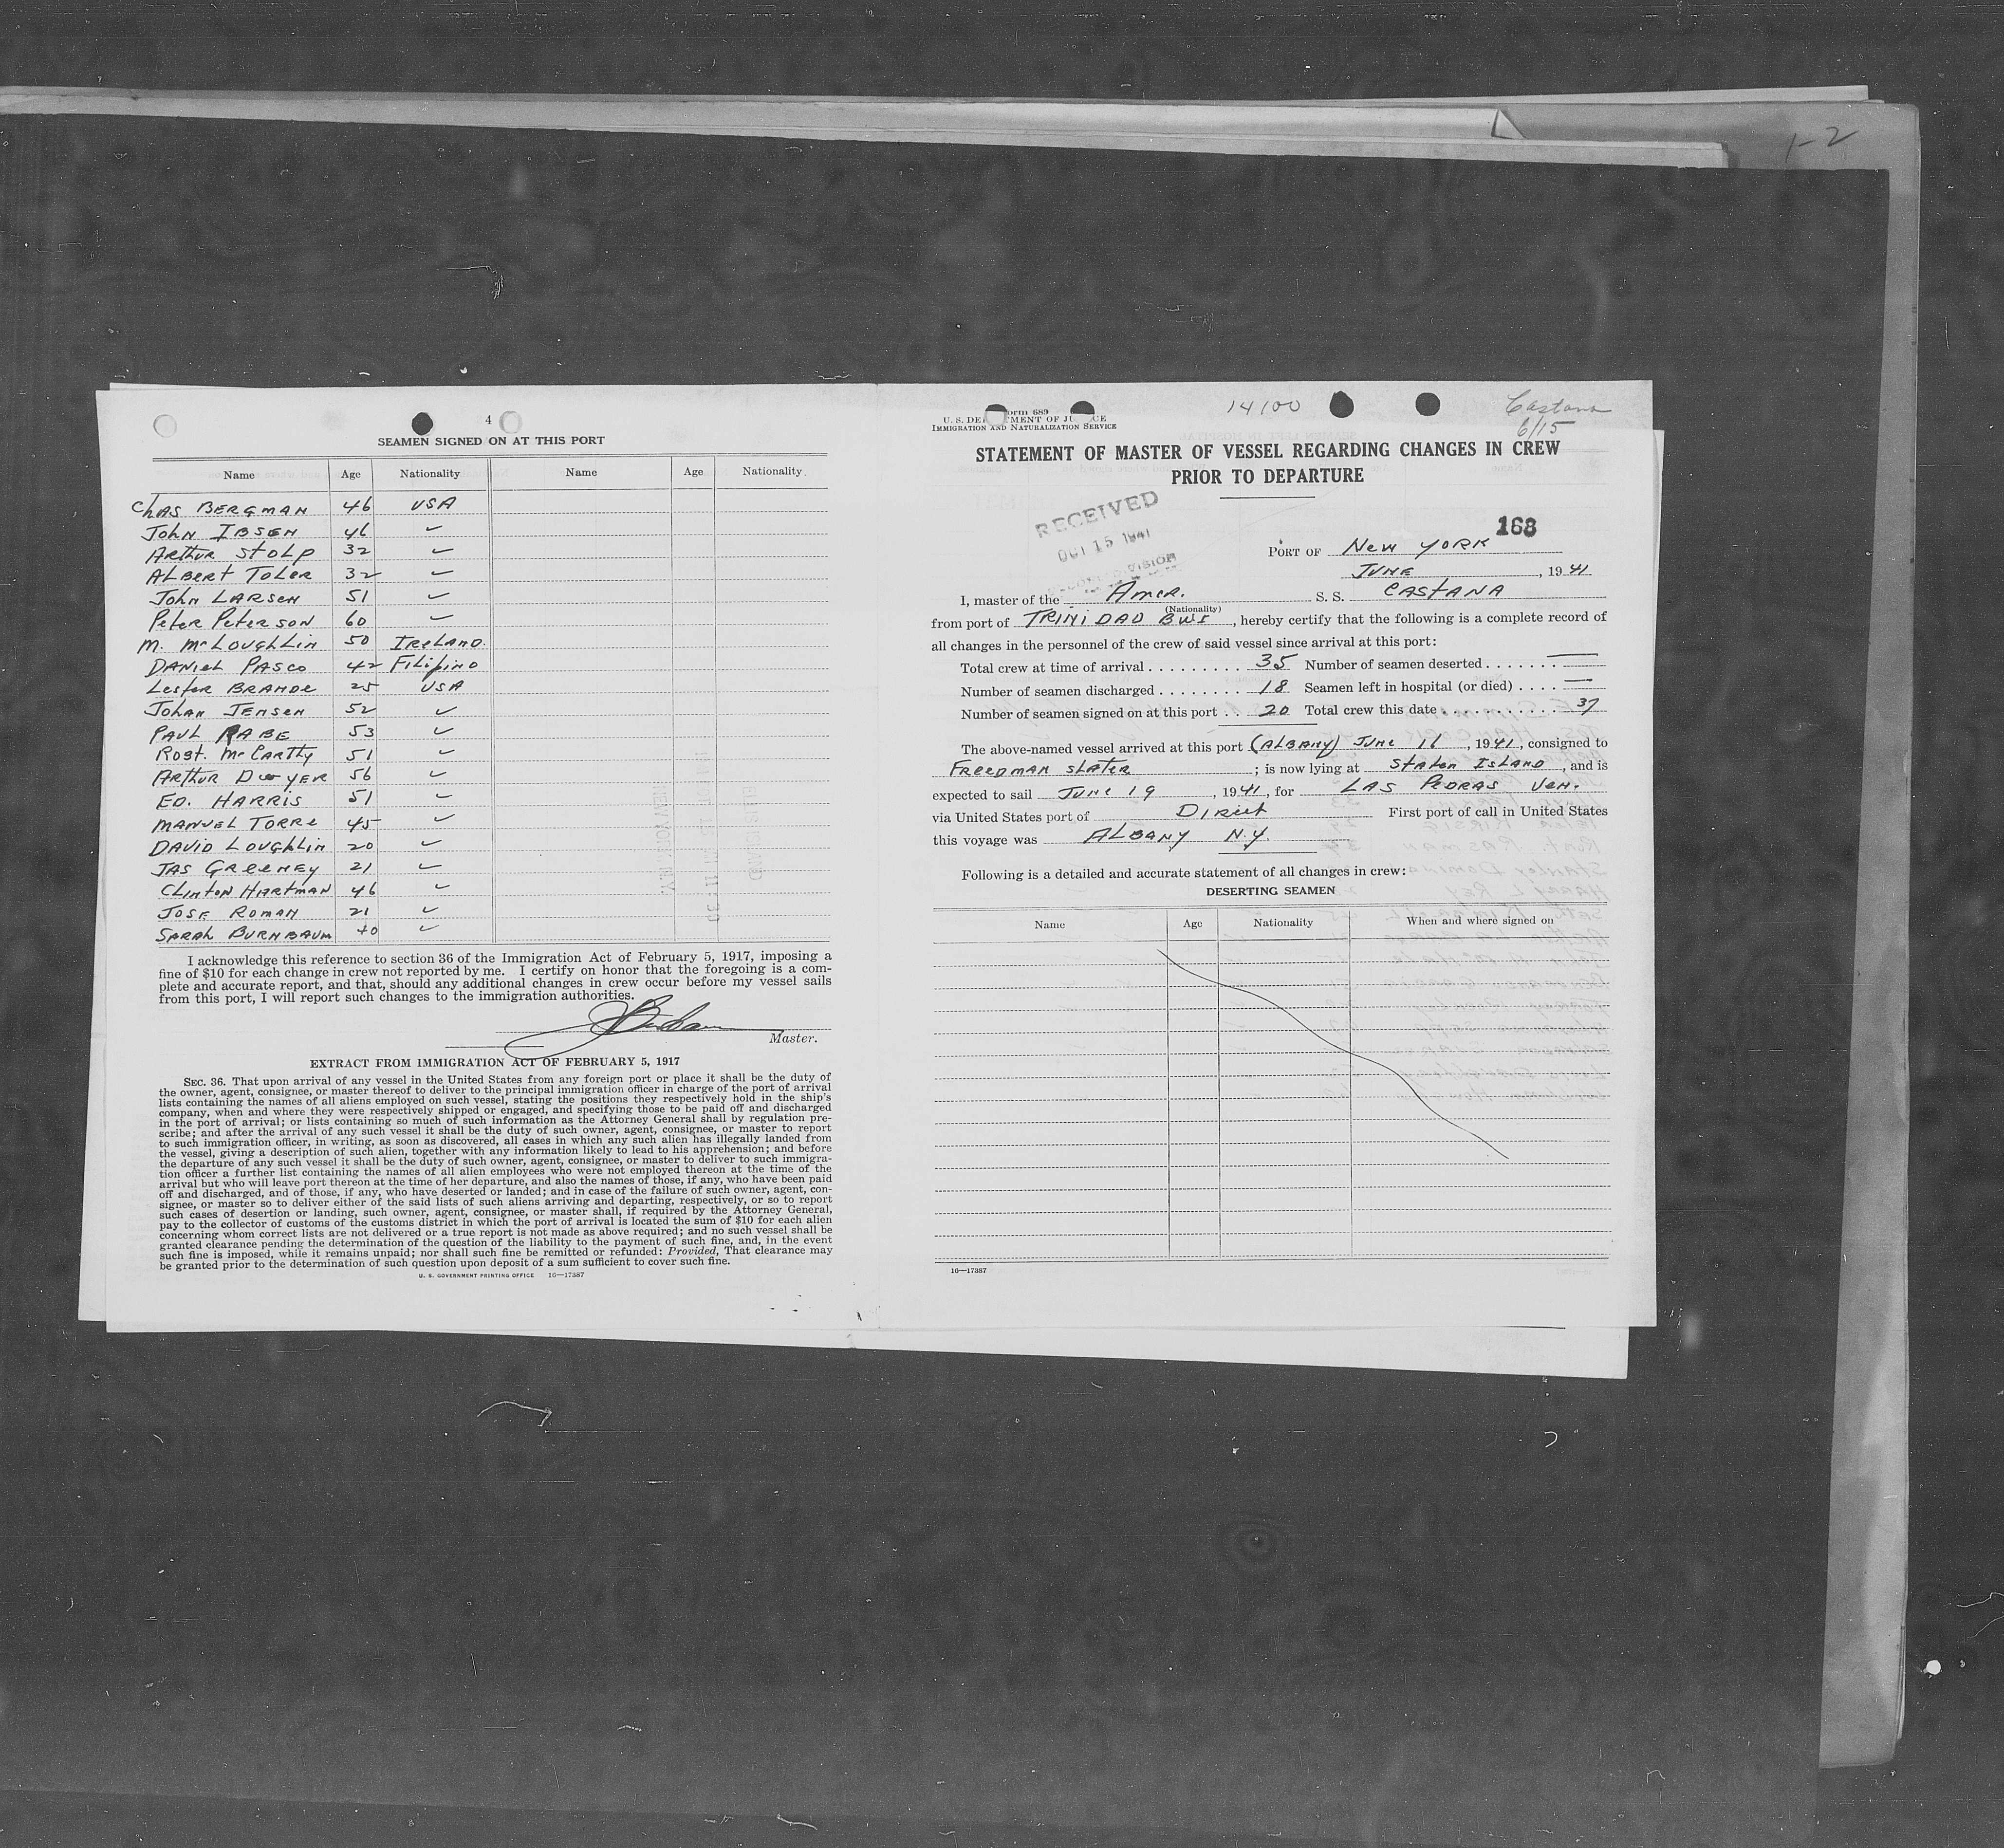 1-2
4
SEAMEN SIGNED ON AT THIS PORT
Name Age Nationality Name Age Nationality
Chas BERGMAN 46 USA
John IBSEN 46 ✓
Arthur Stolp 32 ✓
Albert Toler 32 ✓
John LARSEN 51 ✓
Peter Peterson 60 ✓
M. McLoughlin 50 Ireland.
DANIEL PASCO 42 Filipino
Lester BRANDE 25 USA
Johan Jensen 52 ✓
PAUL RABE 53 ✓
Robt. McCarthy 51 ✓
Arthur Dwyer 56 ✓
ED. HARRIS 51 ✓
MANUEL TORRE 45 ✓
DAVID LOUGHLIN 20 ✓
JAS GREENEY 21 ✓
CLINTON HARTMAN 46 ✓
JOSE ROMAN 21 ✓
SARAH BURNBAUM 40 ✓
I acknowledge this reference to section 36 of the Immigration Act of February 5, 1917, imposing a
fine of $10 for each change in crew not reported by me. I certify on honor that the foregoing is a com-
plete and accurate report, and that, should any additional changes in crew occur before my vessel sails
from this port, I will report such changes to the immigration authorities.
Master.
EXTRACT FROM IMMIGRATION ACT OF FEBRUARY 5, 1917
SEC. 36. That upon arrival of any vessel in the United States from any foreign port or place it shall be the duty of
the owner, agent, consignee, or master thereof to deliver to the principal immigration officer in charge of the port of arrival
lists containing the names of all aliens employed on such vessel, stating the positions they respectively hold in the ship's
company, when and where they were respectively shipped or engaged, and specifying those to be paid off and discharged
in the port of arrival; or lists containing so much of such information as the Attorney General shall by regulation pre-
scribe; and after the arrival of any such vessel it shall be the duty of such owner, agent, consignee, or master to report
to such immigration officer, in writing, as soon as discovered, all cases in which any such alien has illegally landed from
the vessel, giving a description of such alien, together with any information likely to lead to his apprehension; and before
the departure of any such vessel it shall be the duty of such owner, agent, consignee, or master to deliver to such immigra-
tion officer a further list containing the names of all alien employees who were not employed thereon at the time of the
arrival but who will leave port thereon at the time of her departure, and also the names of those, if any, who have been paid
off and discharged, and of those, if any, who have deserted or landed; and in case of the failure of such owner, agent, con-
signee, or master so to deliver either of the said lists of such aliens arriving and departing, respectively, or so to report
such cases of desertion or landing, such owner, agent, consignee, or master shall, if required by the Attorney General,
pay to the collector of customs of the customs district in which the port of arrival is located the sum of $10 for each alien
concerning whom correct lists are not delivered or a true report is not made as above required; and no such vessel shall be
granted clearance pending the determination of the question of the liability to the payment of such fine, and, in the event
such fine is imposed, while it remains unpaid; nor shall such fine be remitted or refunded: Provided, That clearance may
be granted prior to the determination of such question upon deposit of a sum sufficient to cover such fine.
U. S. GOVERNMENT PRINTING OFFICE 16—17387
Form 689
U. S. DEPARTMENT OF JUSTICE
IMMIGRATION AND NATURALIZATION SERVICE
14100
Castana
6/15
STATEMENT OF MASTER OF VESSEL REGARDING CHANGES IN CREW
PRIOR TO DEPARTURE
RECEIVED
OCT 15 1941
168
PORT OF New YORK
JUNE, 1941
I, master of the Amer. S. S. CASTANA
(Nationality)
from port of TRINIDAD BWI, hereby certify that the following is a complete record of
all changes in the personnel of the crew of said vessel since arrival at this port:
Total crew at time of arrival 35 Number of seamen deserted —
Number of seamen discharged 18 Seamen left in hospital (or died) —
Number of seamen signed on at this port 20 Total crew this date 37
The above-named vessel arrived at this port (ALBANY) June 16, 1941, consigned to
Freedman Slater; is now lying at Staten Island, and is
expected to sail June 19, 1941, for LAS PEDRAS Ven.
via United States port of Direct First port of call in United States
this voyage was ALBANY N.Y.
Following is a detailed and accurate statement of all changes in crew:
DESERTING SEAMEN
Name Age Nationality When and where signed on
16—17387